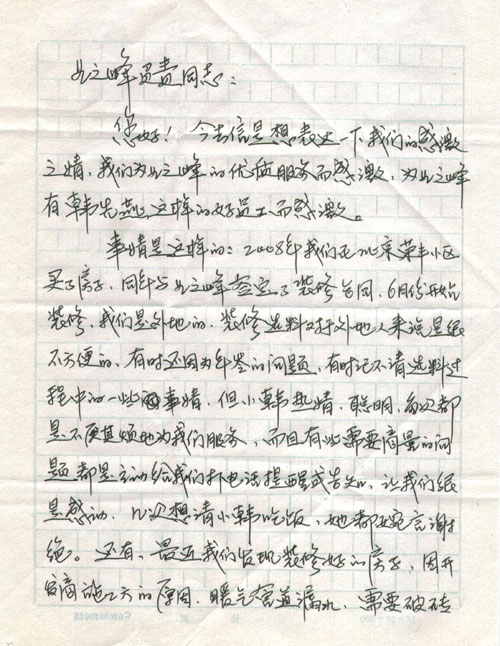 业之峰负责同志：
您好！今去信是想表达一下我们的感激
之情，我们为业之峰的优质服务而感激，为业之峰
有韩先燕这样的好员工而感激。
事情是这样的：2008年我们在北京荣丰小区
买了房子，同年与业之峰签定了装修合同，6月份开始
装修，我们是外地的，装修选料对外地人来说是很
不方便的，有时还因为年岁的问题，有时记不清选料过
程中的一些事情，但小韩热情、聪明，每次都
是不厌其烦地为我们服务，而且有些需要商量的问
题都是主动给我们打电话提醒或告知，让我们很
是感动，几次想请小韩吃饭，她都婉言谢
绝。还有，最近我们发现装修好的房子，因开
发商施工的原因，暖气管道漏水，需要破砖